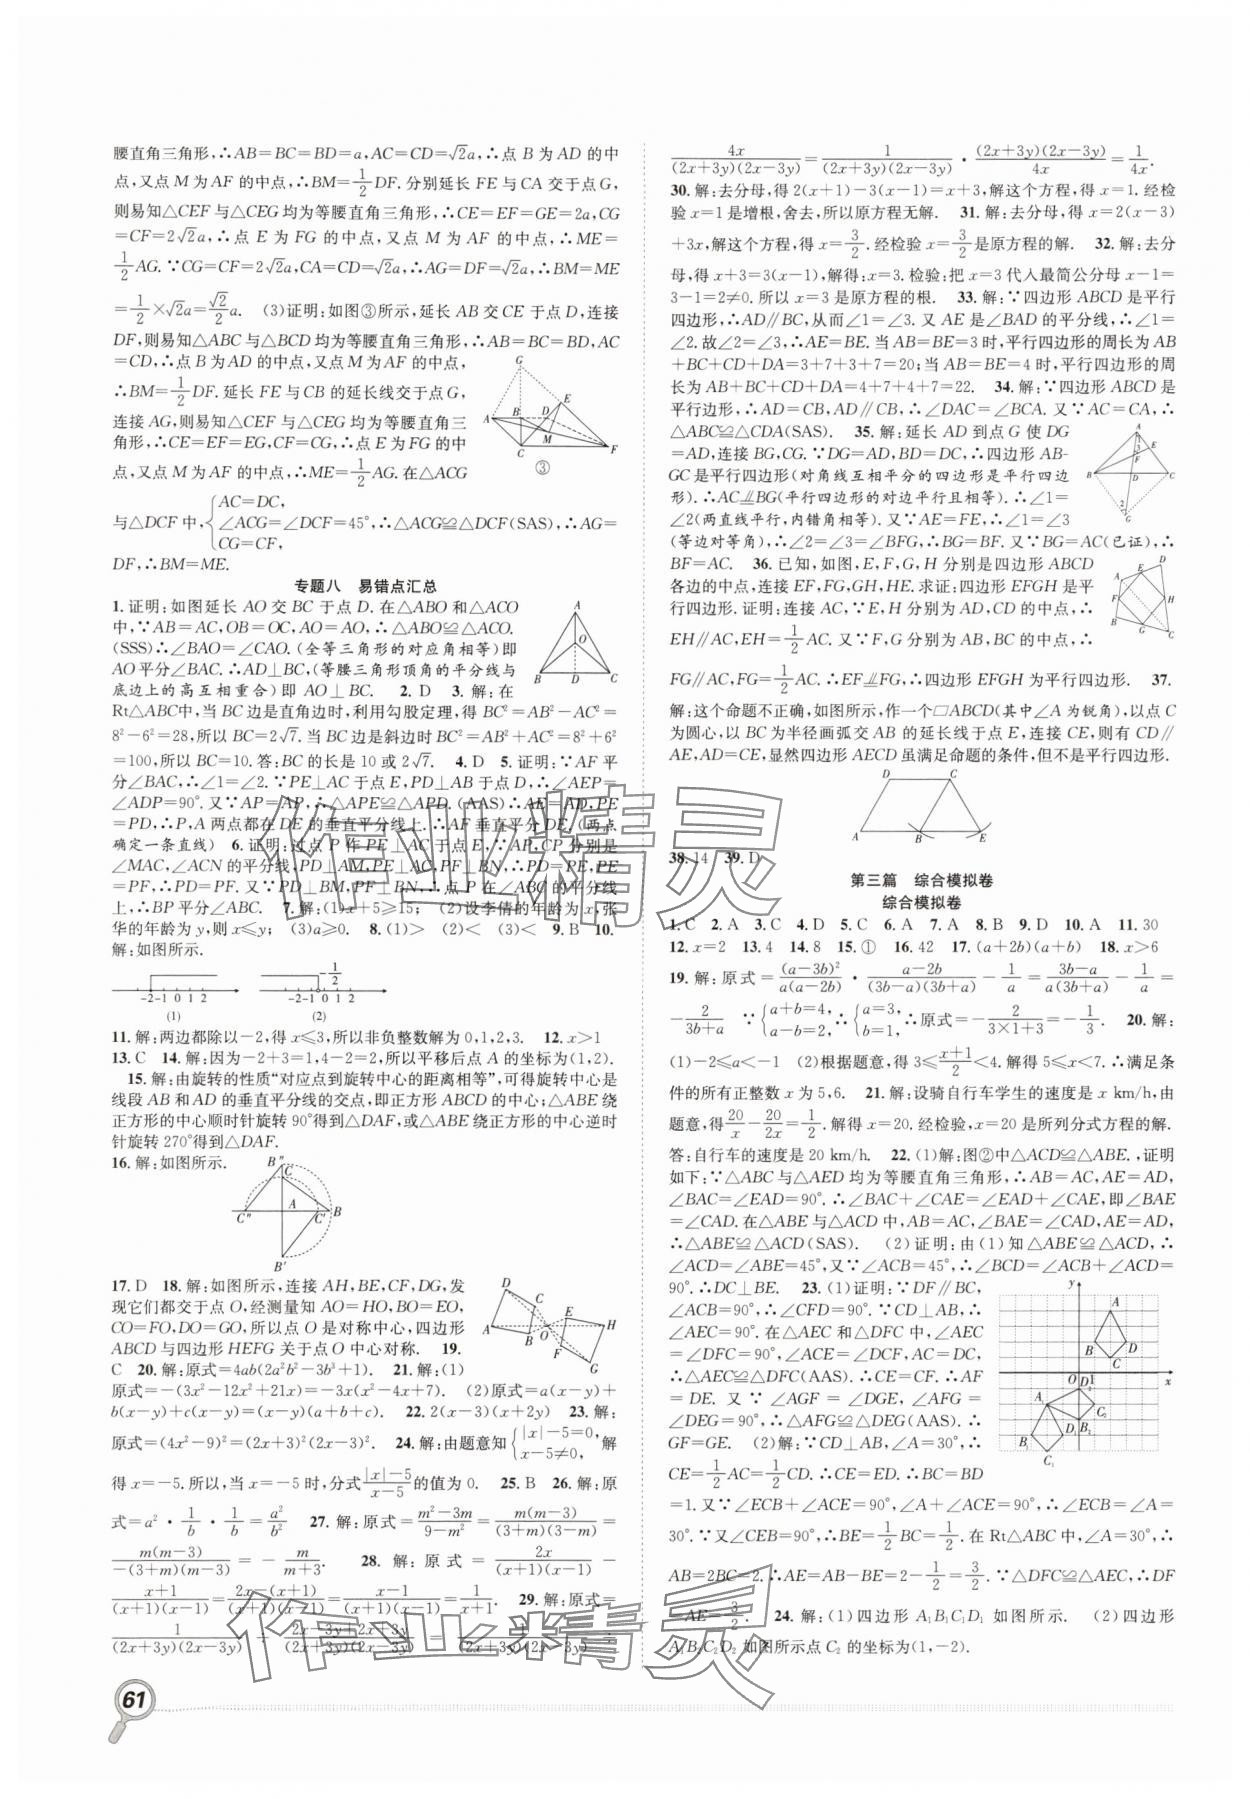 腰直角三角形,∴AB=BC=BD=a,AC=CD=√2a,∴点 B 为 AD 的中
点,又点 M 为 AF 的中点,∴BM=1/2DF. 分别延长 FE 与 CA 交于点 G,
则易知△CEF 与△CEG 均为等腰直角三角形,∴CE=EF=GE=2a,CG
=CF=2√2a,∴点 E 为 FG 的中点,又点 M 为 AF 的中点,∴ME=
1/2AG. ∵CG=CF=2√2a,CA=CD=√2a,∴AG=DF=√2a,∴BM=ME
=1/2×√2a=√2/2a. (3)证明:如图③所示,延长 AB 交 CE 于点 D,连接
DF,则易知△ABC 与△BCD 均为等腰直角三角形,∴AB=BC=BD,AC
=CD,∴点 B 为 AD 的中点,又点 M 为 AF 的中点,
∴BM=1/2DF. 延长 FE 与 CB 的延长线交于点 G,
连接 AG,则易知△CEF 与△CEG 均为等腰直角三
角形,∴CE=EF=EG,CF=CG,∴点 E 为 FG 的中
点,又点 M 为 AF 的中点,∴ME=1/2AG. 在△ACG
与△DCF 中,{AC=DC, ∠ACG=∠DCF=45°, CG=CF, ∴△ACG≌△DCF(SAS),∴AG=
DF,∴BM=ME.
G
A B D E
M
C F
③
专题八 易错点汇总
1. 证明:如图延长 AO 交 BC 于点 D. 在△ABO 和△ACO
中,∵AB=AC,OB=OC,AO=AO,∴△ABO≌△ACO.
(SSS)∴∠BAO=∠CAO. (全等三角形的对应角相等)即
AO 平分∠BAC. ∴AD⊥BC,(等腰三角形顶角的平分线与
底边上的高互相重合)即 AO⊥BC. 2. D 3. 解:在
A
O
B D C
Rt△ABC中,当 BC 边是直角边时,利用勾股定理,得 BC²=AB²-AC²=
8²-6²=28,所以 BC=2√7. 当 BC 边是斜边时 BC²=AB²+AC²=8²+6²
=100,所以 BC=10. 答:BC 的长是 10 或 2√7. 4. D 5. 证明:∵AF 平
分∠BAC,∴∠1=∠2. ∵PE⊥AC 于点 E,PD⊥AB 于点 D,∴∠AEP=
∠ADP=90°. 又∵AP=AP,∴△APE≌△APD. (AAS)∴AE=AD,PE
=PD,∴P,A 两点都在 DE 的垂直平分线上. ∴AF 垂直平分 DE. (两点
确定一条直线) 6. 证明:过点 P 作 PE⊥AC 于点 E,∵AP,CP 分别是
∠MAC,∠ACN 的平分线,PD⊥AM,PE⊥AC,PF⊥BN,∴PD=PE,PE
=PF,∴PD=PF. 又∵PD⊥BM,PF⊥BN,∴点 P 在∠ABC 的平分线
上,∴BP 平分∠ABC. 7. 解:(1)x+5≥15; (2)设李倩的年龄为 x,张
华的年龄为 y,则 x≤y; (3)a≥0. 8. (1)> (2)< (3)< 9. B 10.
解:如图所示.
-2-1 0 1 2
(1)
-1/2
-2-1 0 1 2
(2)
11. 解:两边都除以-2,得 x≤3,所以非负整数解为 0,1,2,3. 12. x>1
13. C 14. 解:因为-2+3=1,4-2=2,所以平移后点 A 的坐标为(1,2).
15. 解:由旋转的性质“对应点到旋转中心的距离相等”,可得旋转中心是
线段 AB 和 AD 的垂直平分线的交点,即正方形 ABCD 的中心;△ABE 绕
正方形的中心顺时针旋转 90°得到△DAF,或△ABE 绕正方形的中心逆时
针旋转 270°得到△DAF.
16. 解:如图所示.
B″
C
A
C″ C′ B
B′
17. D 18. 解:如图所示,连接 AH,BE,CF,DG,发
现它们都交于点 O,经测量知 AO=HO,BO=EO,
CO=FO,DO=GO,所以点 O 是对称中心,四边形
ABCD 与四边形 HEFG 关于点 O 中心对称. 19.
C 20. 解:原式=4ab(2a²b²-3b³+1). 21. 解:(1)
D
C
E
A O H
B
F
G
原式=-(3x²-12x²+21x)=-3x(x²-4x+7). (2)原式=a(x-y)+
b(x-y)+c(x-y)=(x-y)(a+b+c). 22. 2(x-3)(x+2y) 23. 解:
原式=(4x²-9)²=(2x+3)²(2x-3)². 24. 解:由题意知{|x|-5=0, x-5≠0, 解
得 x=-5. 所以,当 x=-5 时,分式|x|-5/x-5的值为 0. 25. B 26. 解:原
式=a²·1/b·1/b=a²/b² 27. 解:原式=m²-3m/9-m²=m(m-3)/(3+m)(3-m)=
m(m-3)/-(3+m)(m-3)=-m/m+3. 28. 解:原式=2x/(x+1)(x-1)-
x+1/(x+1)(x-1)=2x-(x+1)/(x+1)(x-1)=x-1/(x+1)(x-1)=1/x+1. 29. 解:原式=
1/(2x+3y)(2x-3y)÷
61
4x/(2x+3y)(2x-3y)=1/(2x+3y)(2x-3y)·(2x+3y)(2x-3y)/4x=1/4x.
30. 解:去分母,得 2(x+1)-3(x-1)=x+3,解这个方程,得 x=1. 经检
验 x=1 是增根,舍去,所以原方程无解. 31. 解:去分母,得 x=2(x-3)
+3x,解这个方程,得 x=3/2. 经检验 x=3/2是原方程的解. 32. 解:去分
母,得 x+3=3(x-1),解得:x=3. 检验:把 x=3 代入最简公分母 x-1=
3-1=2≠0. 所以 x=3 是原方程的根. 33. 解:∵四边形 ABCD 是平行
四边形,∴AD∥BC,从而∠1=∠3. 又 AE 是∠BAD 的平分线,∴∠1=
∠2. 故∠2=∠3,∴AE=BE. 当 AB=BE=3 时,平行四边形的周长为 AB
+BC+CD+DA=3+7+3+7=20;当 AB=BE=4 时,平行四边形的周
长为 AB+BC+CD+DA=4+7+4+7=22. 34. 解:∵四边形 ABCD 是
平行四边形,∴AD=CB,AD∥CB,∴∠DAC=∠BCA. 又∵AC=CA,∴
△ABC≌△CDA(SAS). 35. 解:延长 AD 到点 G 使 DG
=AD,连接 BG,CG. ∵DG=AD,BD=DC,∴四边形 AB-
GC 是平行四边形(对角线互相平分的四边形是平行四边
形). ∴AC∥BG(平行四边形的对边平行且相等). ∴∠1=
∠2(两直线平行,内错角相等). 又∵AE=FE,∴∠1=∠3
(等边对等角),∴∠2=∠3=∠BFG,∴BG=BF. 又∵BG=AC(已证),∴
A
1
3
E
F
B D C
2
G
BF=AC. 36. 已知,如图,E,F,G,H 分别是四边形 ABCD
各边的中点,连接 EF,FG,GH,HE. 求证:四边形 EFGH 是平
行四边形. 证明:连接 AC,∵E,H 分别为 AD,CD 的中点,∴
EH∥AC,EH=1/2AC. 又∵F,G 分别为 AB,BC 的中点,∴
FG∥AC,FG=1/2AC. ∴EF∥FG,∴四边形 EFGH 为平行四边形. 37.
D
A E
F H
B G C
解:这个命题不正确,如图所示,作一个□ABCD(其中∠A 为锐角),以点 C
为圆心,以 BC 为半径画弧交 AB 的延长线于点 E,连接 CE,则有 CD∥
AE,AD=CE,显然四边形 AECD 虽满足命题的条件,但不是平行四边形.
D C
A B E
38. 14 39. D
第三篇 综合模拟卷
综合模拟卷
1. C 2. A 3. C 4. D 5. C 6. A 7. A 8. B 9. D 10. A 11. 30
12. x=2 13. 4 14. 8 15. ① 16. 42 17. (a+2b)(a+b) 18. x>6
19. 解:原式=(a-3b)²/a(a-2b)·a-2b/(3b-a)(3b+a)-1/a=3b-a/a(3b+a)-1/a=
-2/3b+a ∵{a+b=4, a-b=2, ∴{a=3, b=1, ∴原式=-2/3×1+3=-1/3. 20. 解:
(1)-2≤a<-1 (2)根据题意,得 3≤x+1/2<4. 解得 5≤x<7. ∴满足条
件的所有正整数 x 为 5,6. 21. 解:设骑自行车学生的速度是 x km/h,由
题意,得20/x-20/2x=1/2. 解得 x=20. 经检验,x=20 是所列分式方程的解.
答:自行车的速度是 20 km/h. 22. (1)解:图②中△ACD≌△ABE. ,证明
如下:∵△ABC 与△AED 均为等腰直角三角形,∴AB=AC,AE=AD,
∠BAC=∠EAD=90°. ∴∠BAC+∠CAE=∠EAD+∠CAE,即∠BAE
=∠CAD. 在△ABE 与△ACD 中,AB=AC,∠BAE=∠CAD,AE=AD,
∴△ABE≌△ACD(SAS). (2)证明:由(1)知△ABE≌△ACD,∴
∠ACD=∠ABE=45°,又∵∠ACB=45°,∴∠BCD=∠ACB+∠ACD=
90°. ∴DC⊥BE. 23. (1)证明:∵DF∥BC,
∠ACB=90°,∴∠CFD=90°. ∵CD⊥AB,∴
∠AEC=90°. 在△AEC 和△DFC 中,∠AEC
=∠DFC=90°,∠ACE=∠DCF,AC=DC,
∴△AEC≌△DFC(AAS). ∴CE=CF. ∴AF
=DE. 又∵∠AGF=∠DGE,∠AFG=
∠DEG=90°,∴△AFG≌△DEG(AAS). ∴
GF=GE. (2)解:∵CD⊥AB,∠A=30°,∴
CE=1/2AC=1/2CD. ∴CE=ED. ∴BC=BD
y
A
B D
C
O D₂1 x
A₁ C₂
B₁ D₁ B₂
C₁
=1. 又∵∠ECB+∠ACE=90°,∠A+∠ACE=90°,∴∠ECB=∠A=
30°. ∵又∠CEB=90°,∴BE=1/2BC=1/2. 在 Rt△ABC 中,∠A=30°,∴
AB=2BC=2. ∴AE=AB-BE=2-1/2=3/2. ∵△DFC≌△AEC,∴DF
=AE=3/2. 24. 解:(1)四边形 A₁B₁C₁D₁ 如图所示. (2)四边形
A₁B₂C₂D₂ 如图所示点 C₂ 的坐标为(1,-2).
作业精灵
作业精灵